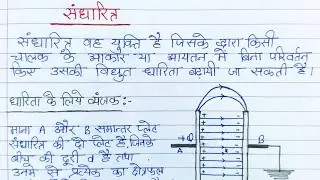 संधारित्र
संधारित्र वह युक्ति है जिसके द्वारा किसी
चालक के आकार या आयतन में बिना परिवर्तन
किए उसकी विद्युत धारिता बढायी जा सकती है।
धारिता के लिये व्यंजक:-
माना A और B समान्तर प्लेट
संधारित्र की दो प्लेट हैं, जिनके
बीच की दूरी d है तथा
उनमें से प्रत्येक का क्षेत्रफल
A
B